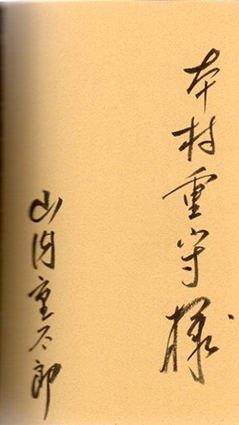 本村重守様
山内重太郎